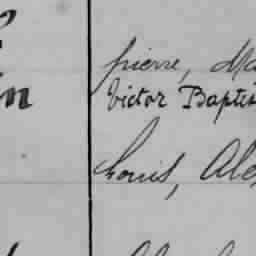 pierre, Ma
Victor Baptis
Louis, Ale